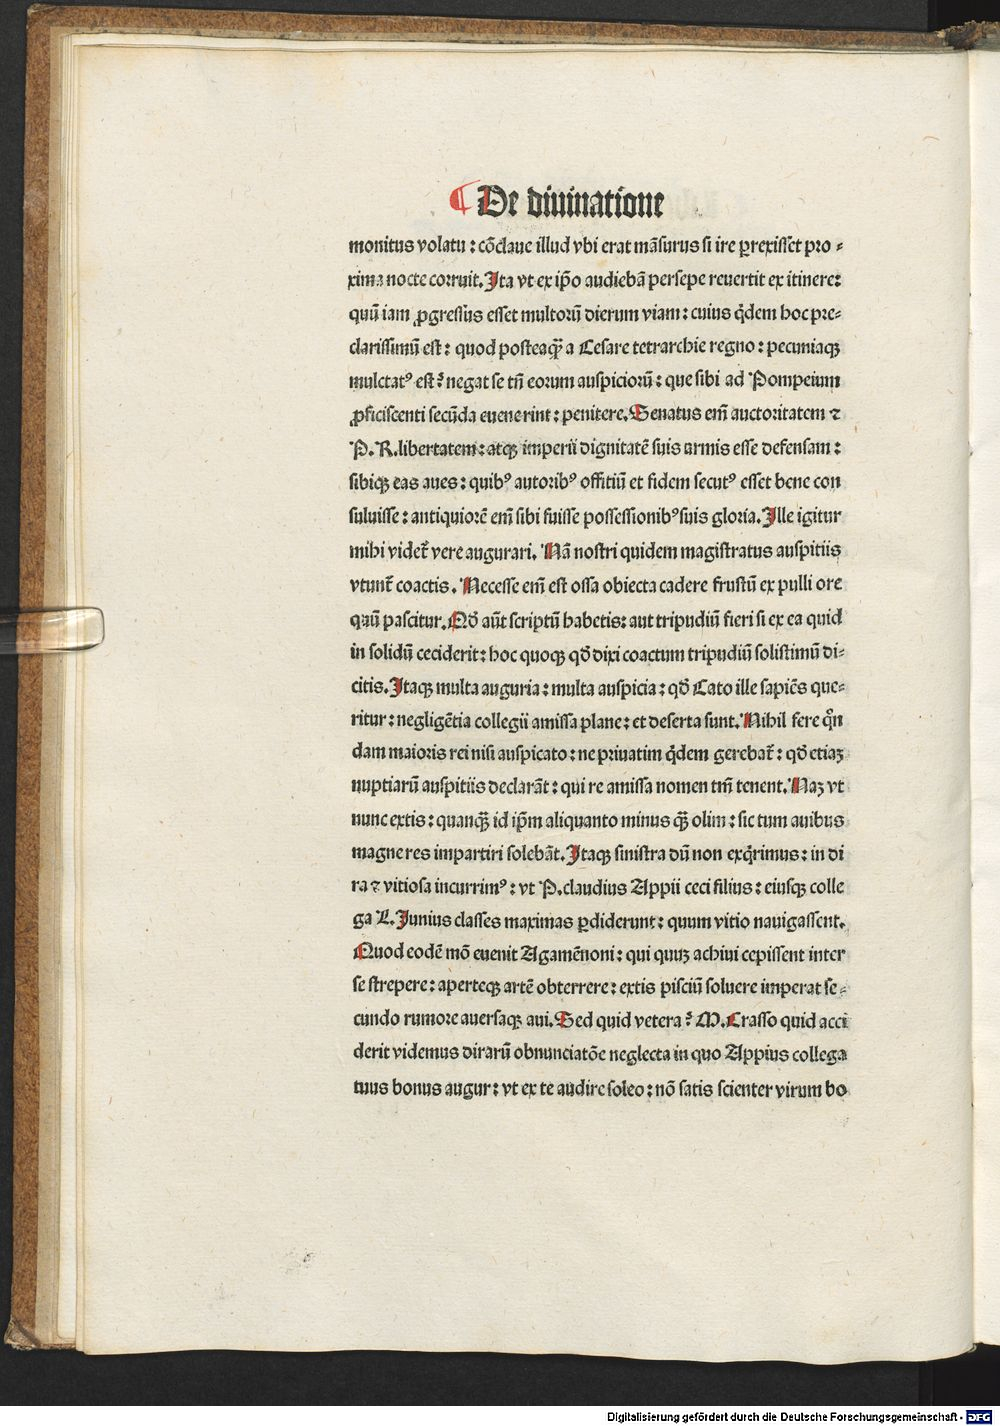 ¶ De diuinatione
monitus volatu : cōclaue illud vbi erat māsurus si ire ꝑrexisset pro ⸗
xima nocte corruit. Ita vt ex ip̄o audiebā persepe reuertit ex itinere:
quū iam ꝓgressus esset multorū dierum viam : cuius q̇dem hoc pre⸗
clarissimū est : quod posteaq̄ꝫ a Cesare tetrarchie regno : pecuniaqꝫ
mulctatꝰ est : negat se tn̄ eorum auspiciorū : que sibi ad Pompeium
ꝓficiscenti secūda euenerint : penitere. Senatus em̄ auctoritatem ⁊
P. R. libertatem : atqꝫ imperii dignitatē suis armis esse defensam :
sibiqꝫ eas aues : quibꝰ autoribꝰ offitiū et fidem secutꝰ esset bene con
suluisse : antiquiorē em̄ sibi fuisse possessionibꝰ suis gloria. Ille igitur
mihi videt᷑ vere augurari. Nā nostri quidem magistratus auspitiis
vtunt᷑ coactis. Necesse em̄ est ossa obiecta cadere frustū ex pulli ore
quū pascitur. Qđ aūt scriptū habetis : aut tripudiū fieri si ex ea quid
in solidū ceciderit : hoc quoqꝫ qđ dixi coactum tripudiū solistimū di⸗
citis. Itaqꝫ multa auguria : multa auspicia : qđ Cato ille sapiēs que⸗
ritur : negligētia collegii amissa plane : et deserta sunt. Nihil fere q̇n
dam maioris rei nisi auspicato : ne priuatim q̇dem gerebat᷑ : qđ etiaꝫ
nuptiarū auspitiis declarāt : qui re amissa nomen tm̄ tenent. Naꝫ vt
nunc extis : quanq̄ꝫ id ip̄m aliquanto minus q̄ꝫ olim : sic tum auibus
magne res impartiri solebāt. Itaqꝫ sinistra dū non exq̇rimus : in di
ra ⁊ vitiosa incurrimꝰ : vt P. claudius Appii ceci filius : eiusqꝫ colle
ga L. Junius classes maximas ꝑdiderunt : quum vitio nauigassent.
Quod eodē mō euenit Agamēnoni : qui quuꝫ achiui cepissent inter
se strepere : aperteqꝫ artē obterrere : extis pisciū soluere imperat se⸗
cundo rumore auersaqꝫ aui. Sed quid vetera : M. Crasso quid acci
derit videmus dirarū obnunciatōe neglecta in quo Appius collega
tuus bonus augur : vt ex te audire soleo : nō satis scienter virum bo
Digitalisierung gefördert durch die Deutsche Forschungsgemeinschaft - DFG